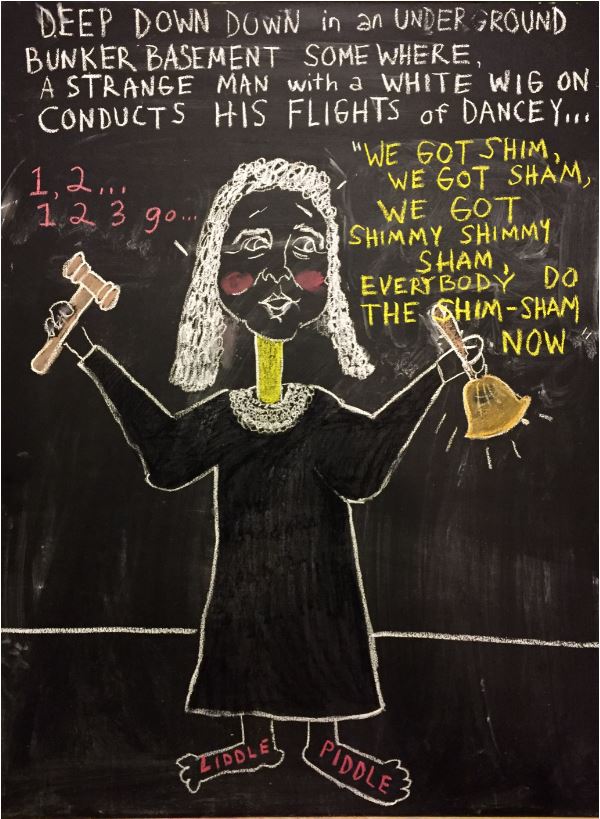 DEEP DOWN DOWN in an UNDERGROUND
BUNKER BASEMENT SOMEWHERE,
A STRANGE MAN with a WHITE WIG ON
CONDUCTS HIS FLIGHTS of DANCEY...
"WE GOT SHIM,
WE GOT SHAM,
WE GOT
SHIMMY SHIMMY
SHAM,
EVERYBODY DO
THE SHIM-SHAM
NOW
1, 2...
1 2 3 go...
LIDDLE
PIDDLE